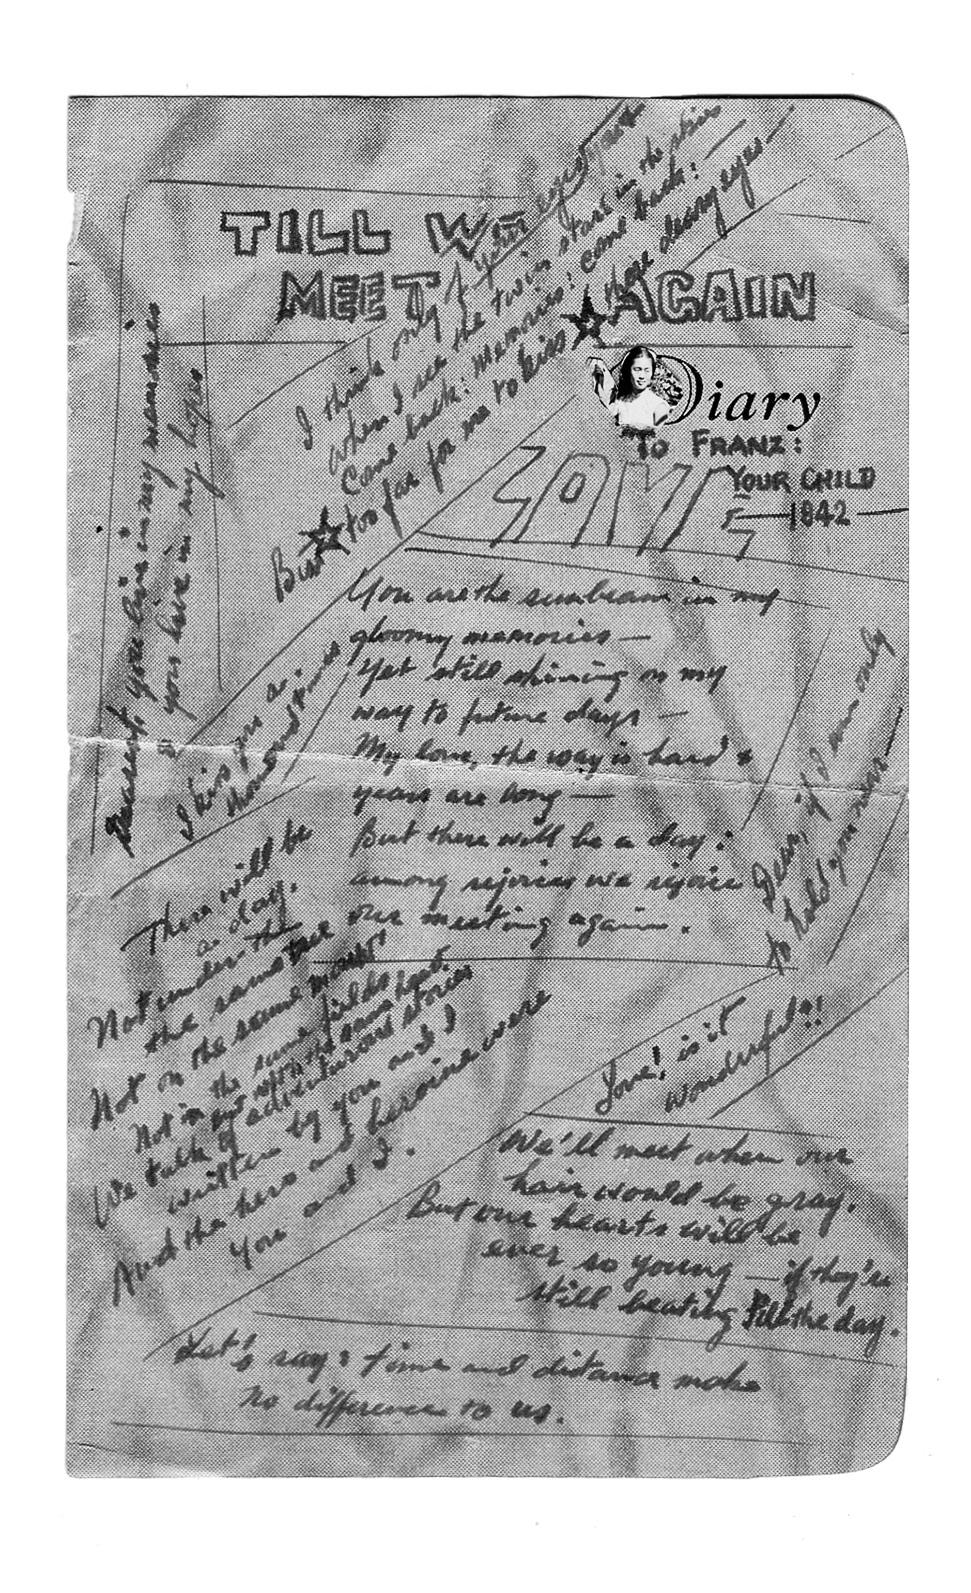 TILL WE
MEET AGAIN
I think only of your eyes
when I see the twin stars in the skies
Come back: memories! come back: —
But too far for me to kiss these deary eyes —
Diary
To FRANZ:
YOUR CHILD
1842
Dearest, you live in my memories
& you live in my hopes
I kiss you a
thousand times
You are the sunbeam in my
gloomy memories —
Yet still shining on my
way to future days —
My love, the way is hard &
years are long —
But there will be a day:
among rejoices we rejoice
our meeting again.
Dear, if I can only
to hold you near —
There will be
a day.
Not under the
the same tree
Not on the same mount
Not in the same fields
but with the same heart.
We talk of adventurous stories
written by you and I
And the hero and heroine were
You and I.
Love! is it
wonderful?!!
We'll meet when our
hair would be gray.
But our hearts will be
ever so young — if they're
still beating till the day.
Let's say: time and distance make
no difference to us.